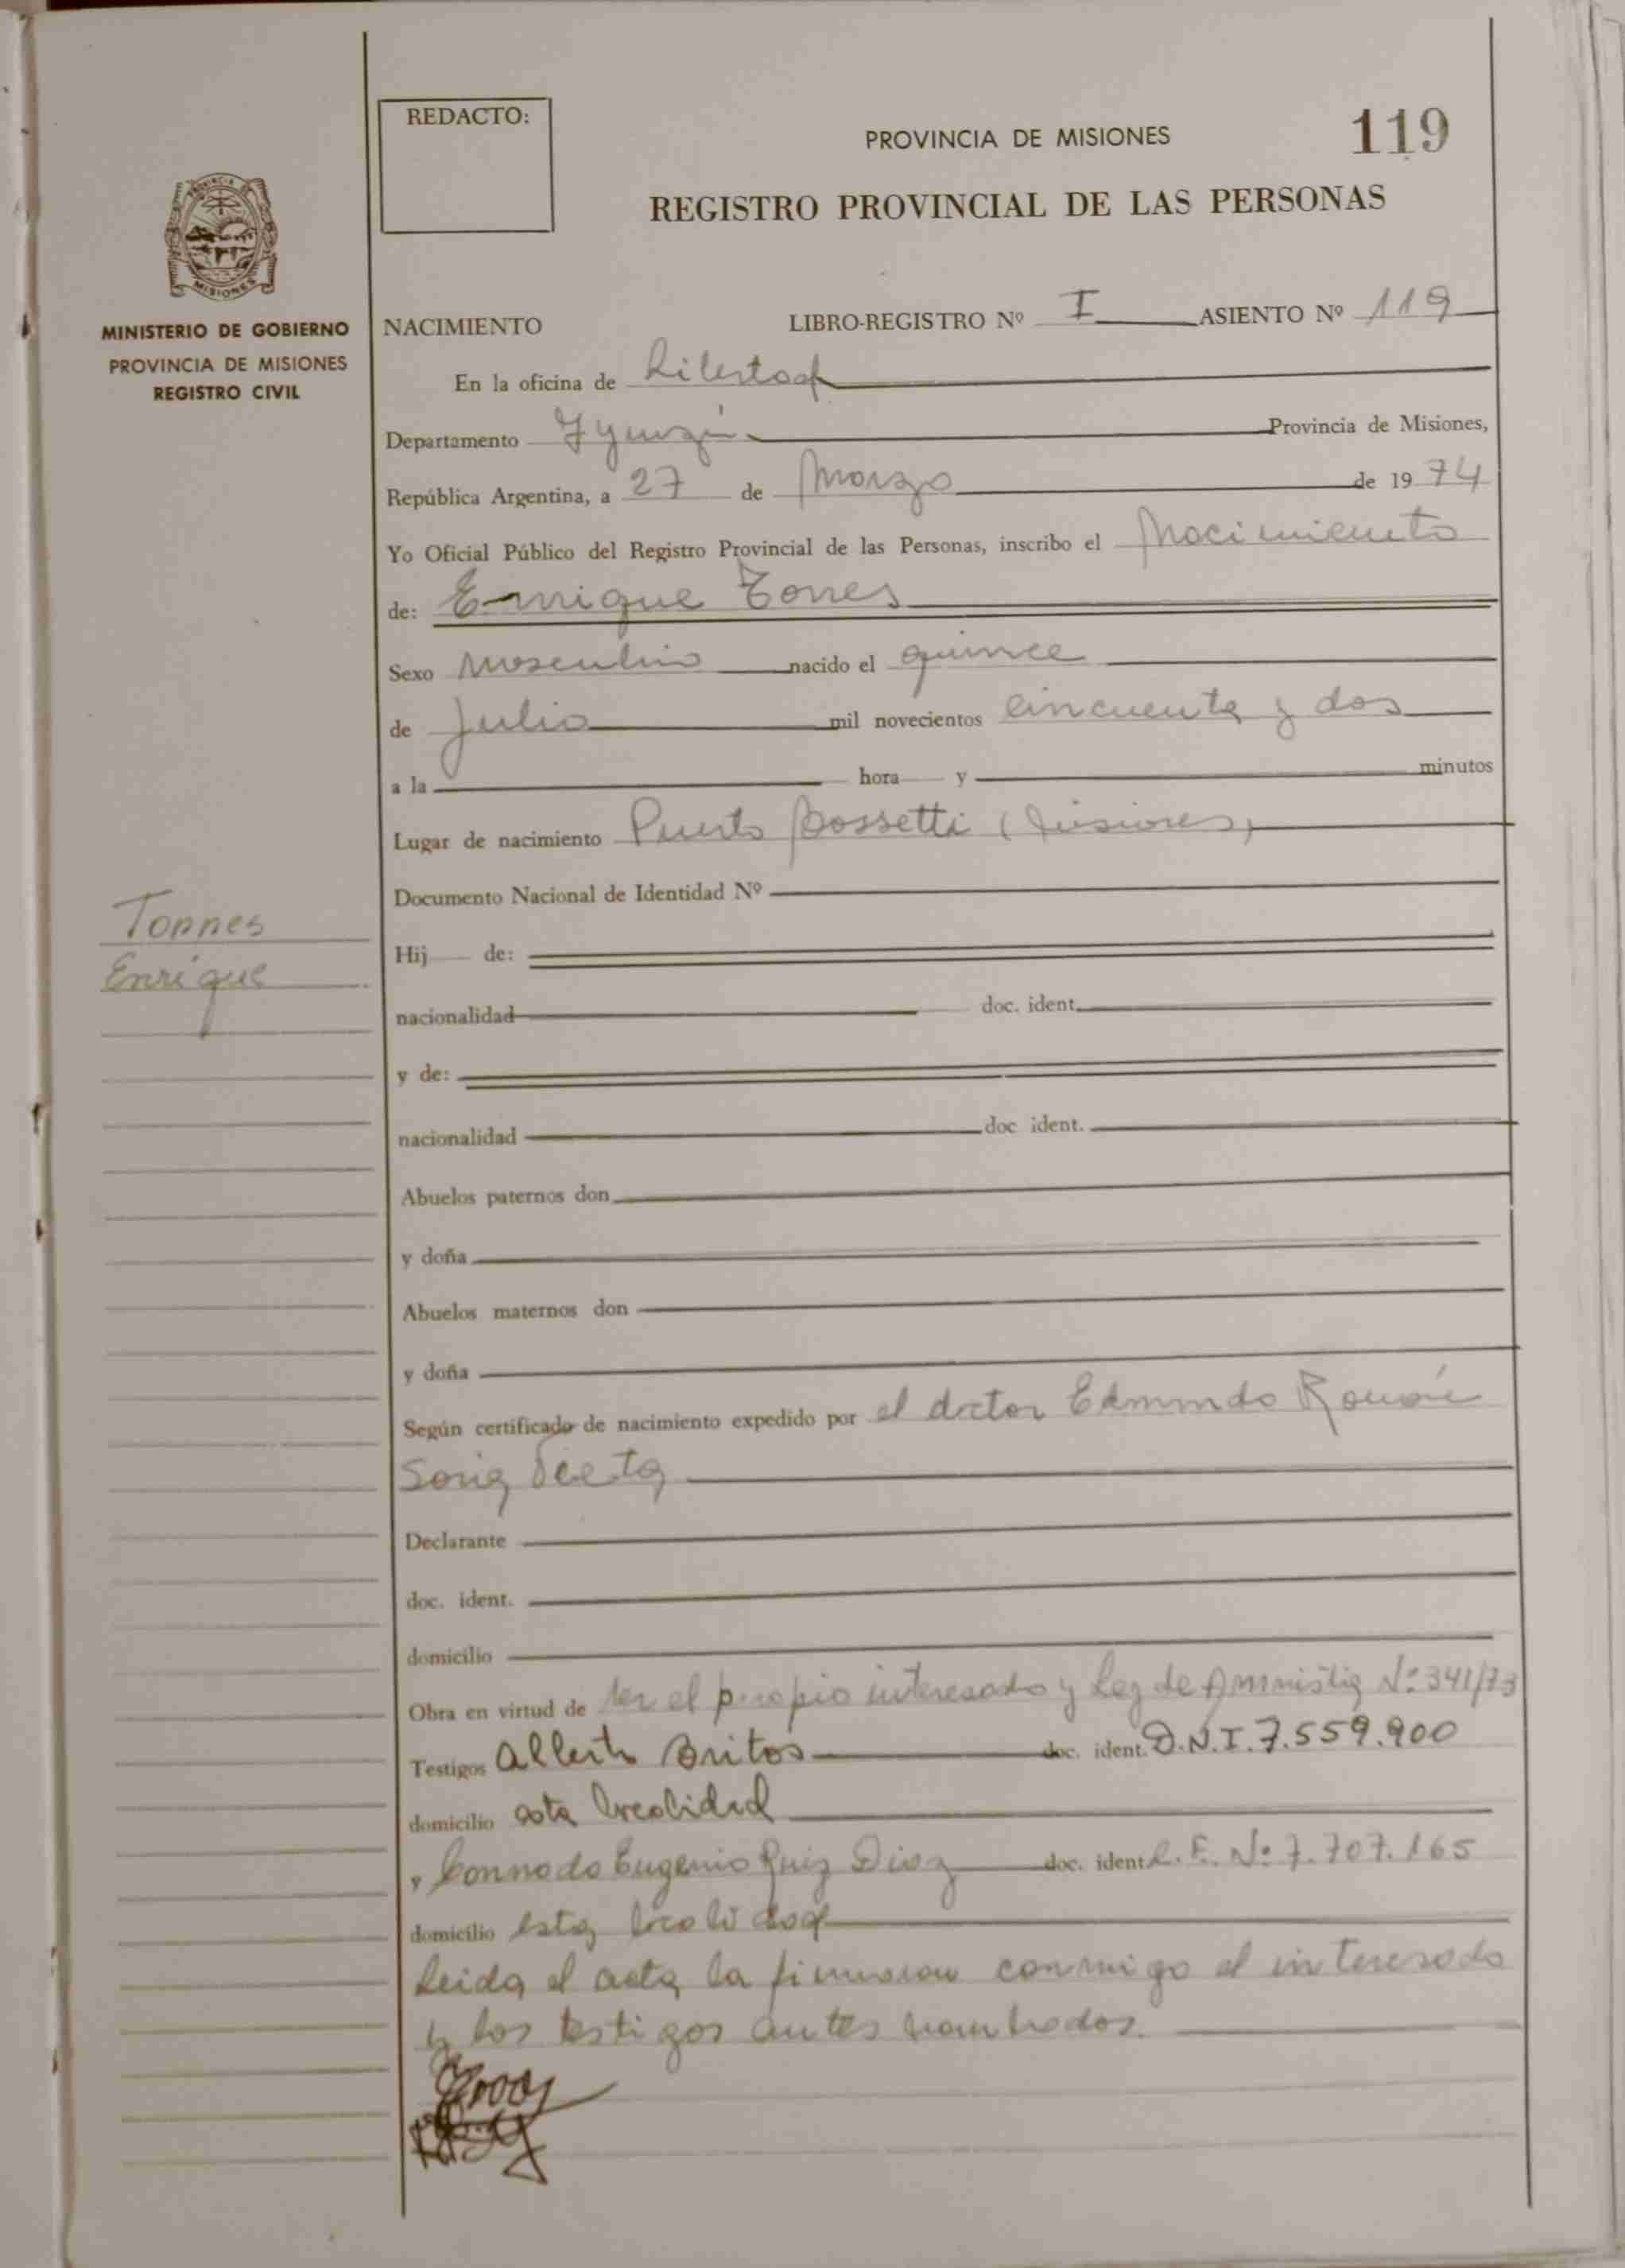 REDACTO:
PROVINCIA DE MISIONES
119
REGISTRO PROVINCIAL DE LAS PERSONAS
PROVINCIA DE
MISIONES
MINISTERIO DE GOBIERNO
PROVINCIA DE MISIONES
REGISTRO CIVIL
NACIMIENTO LIBRO-REGISTRO Nº I ASIENTO Nº 119
En la oficina de Libertad
Departamento Iguazú Provincia de Misiones,
República Argentina, a 27 de Marzo de 1974
Yo Oficial Público del Registro Provincial de las Personas, inscribo el Nacimiento
de: Enrique Torres
Sexo Masculino nacido el quince
de Julio mil novecientos cincuenta y dos
a la hora y minutos
Lugar de nacimiento Puerto Bossetti (Misiones)
Documento Nacional de Identidad Nº
Torres
Enrique
Hij de:
nacionalidad doc. ident.
y de:
nacionalidad doc ident.
Abuelos paternos don
y doña
Abuelos maternos don
y doña
Según certificado de nacimiento expedido por el doctor Edmundo Román
Soria
Declarante
doc. ident.
domicilio
Obra en virtud de ser el propio interesado y Ley de Amnistia Nº 341/73
Testigos Alberto Britos doc. ident. D.N.I. 7.559.900
domicilio esta localidad
y Conrado Eugenio Ruiz Diaz doc. ident. L.E. Nº 7.707.165
domicilio esta localidad
Leida el acta la firmaron conmigo el interesado
y los testigos antes nombrados.